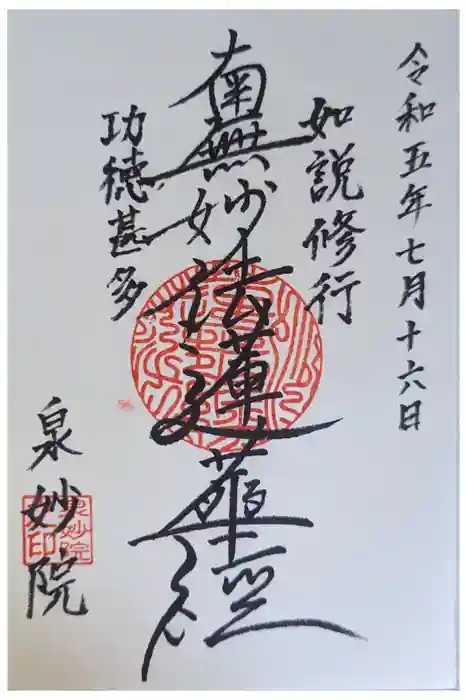 令和五年七月十六日
如説修行
南無妙法蓮華経
功徳甚多
泉妙院
泉妙院印